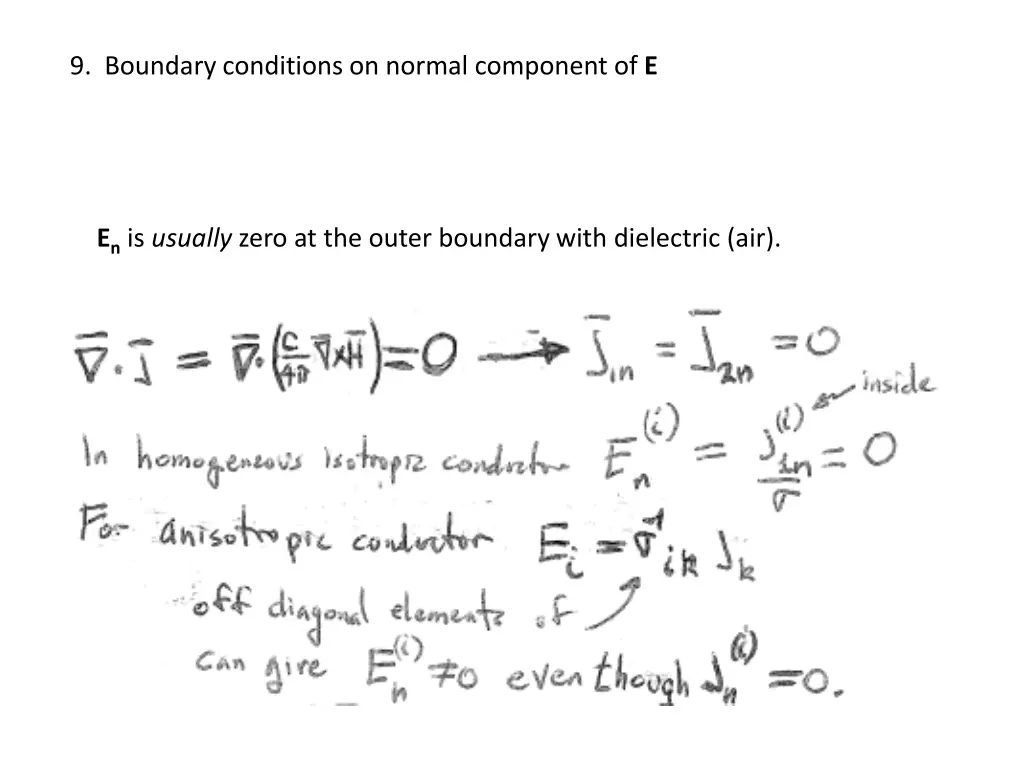 9. Boundary conditions on normal component of E
Eₙ is usually zero at the outer boundary with dielectric (air).
∇̄·j̄ = ∇̄·(c/4π ∇̄×H̄) = 0 → j̄₁ₙ = j̄₂ₙ = 0
inside
In homogeneous isotropic conductor Eₙ⁽ⁱ⁾ = j₁ₙ⁽ⁱ⁾/σ = 0
For anisotropic conductor Eᵢ = σ⁻¹ᵢₖ jₖ
off diagonal elements of
can give Eₙ⁽ⁱ⁾ ≠ 0 even though jₙ⁽ⁱ⁾ = 0.